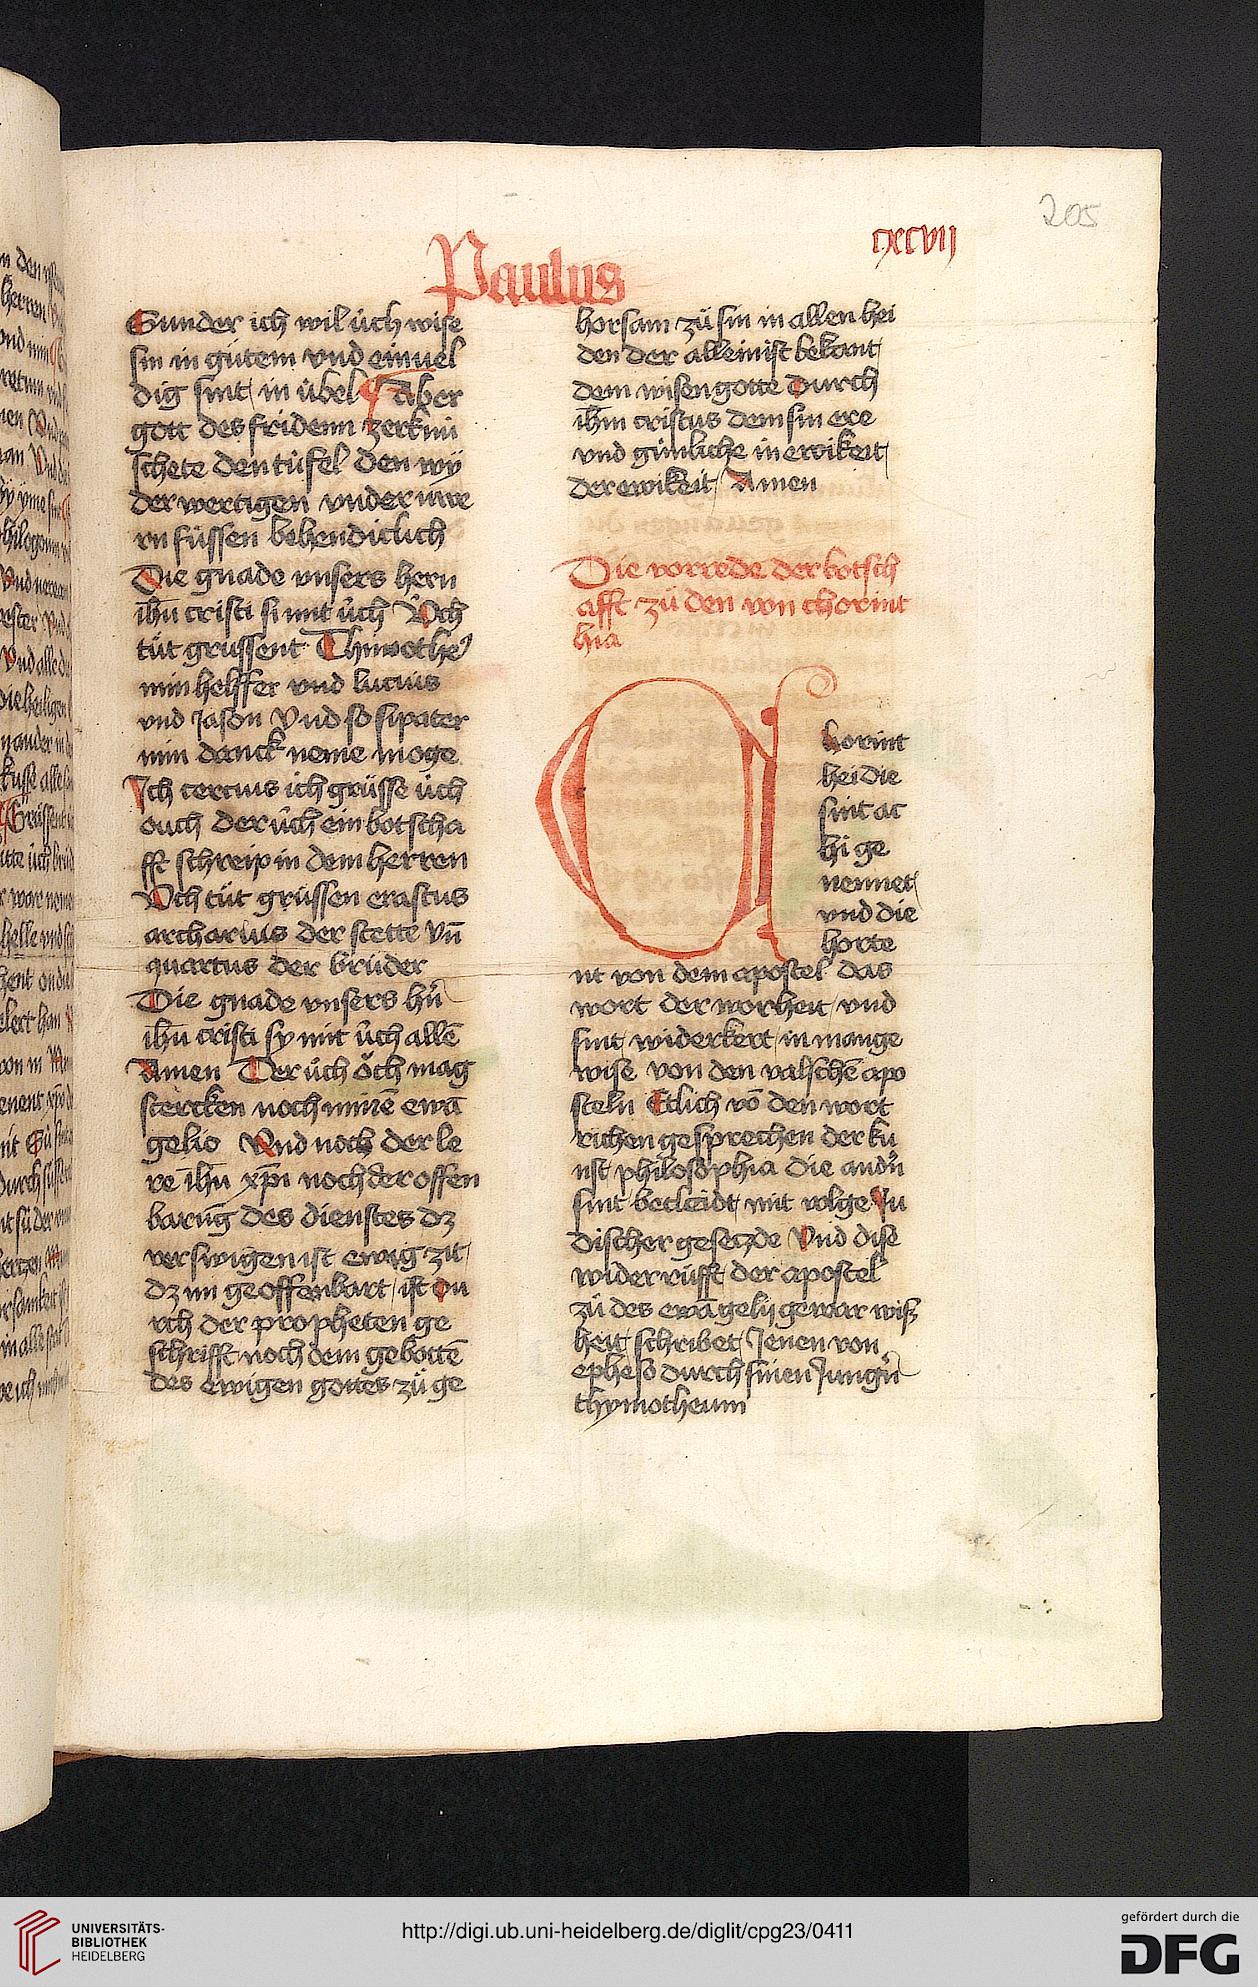 205
cxcvij
Paulus
Sunder ich wil úch wise
sin in gůtem vnd einuel
dig sint in úbel Aber
gott des fridenn zerknú
schete den túfel den wý
der wertigen vnder uwe
rn fússen behendiclich
Die gnade vnsers hern
ih̄u cristi si mit úch Och
tůt grussent Thimothe
min helffer vnd lucius
vnd Jason Vnd so sipater
min danck neme moge
Ich tercius ich grússe úch
ouch der úch ein botscha
fft schreip in dem herren
Och tůt grússen erastus
archarius der stette vn̄
quartus der brůder
Die gnade vnsers hn̄
ih̄u cristi sy mit úch allē
Amen Der úch ôch mag
stercken noch minē ewā
gelio Vnd noch der le
re ih̄u xp̄i noch der offen
barūg des dienstes dz
verswigen ist ewig zit
dz nu geoffenbart ist du
rch der propheten ge
schrifft noch dem gebottē
des ewigen gottes zů ge
horsam zů sin in allen hei
den der allein ist bekant
dem wisen gotte durch
ih̄m cristus dem sin ere
vnd gúnliche in ewikeit
der ewikeit Amen
Die vorrede der botsch
afft zů den von chorint
hia
Chorint
hei die
sint ac
hi ge
nennet
vnd die
horte
nt von dem apostel das
wort der worheit vnd
sint widerkert in mange
wise von den valschē apo
steln Etlich vō den wort
richen gesprechen der ku
nst philosophia die andn̄
sint becleidt mit volge Ju
discher gesetzde Vnd dise
wider rúfft der apostel
zů des ewāgelij gewar wis
heit schribet Jenen von
epheso durch sinen Jungn̄
thymotheum
UNIVERSITÄTS-
BIBLIOTHEK
HEIDELBERG
http://digi.ub.uni-heidelberg.de/diglit/cpg23/0411
gefördert durch die
DFG